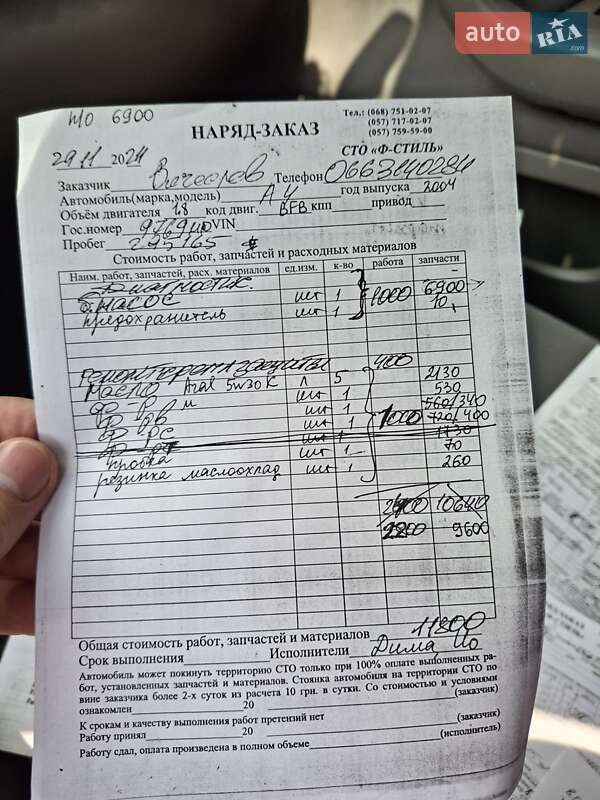 auto RIA .com
т/о 6900
Тел.: (068) 751-02-07
(057) 717-02-07
(057) 759-59-00
НАРЯД-ЗАКАЗ
СТО «Ф-СТИЛЬ»
29 11 2024
Заказчик Телефон
Автомобиль(марка,модель) А4 год выпуска 2004
Объём двигателя 1.8 код двиг. BFB кпп привод
Гос.номер 9769 VIN
Пробег 295165
Стоимость работ, запчастей и расходных материалов
Наим. работ, запчастей, расх. материалов ед.изм. к-во работа запчасти
Диагностик. -
б.насос шт 1 1000 6900
предохранитель шт 1 10
ремонт защиты 400
масло Aral 5w30K л 5 2130
ф-р м шт 1 530
ф-р вв шт 1 560/340
ф-р рс шт 1 1000 720/400
шт 1 1130
пробка шт 1 70
резинка маслоохлад шт 1 260
2400 10640
2200 9600
Общая стоимость работ, запчастей и материалов 11800
Срок выполнения Исполнители Дима,
Автомобиль может покинуть территорию СТО только при 100% оплате выполненных ра-
бот, установленных запчастей и материалов. Стоянка автомобиля на территории СТО по
вине заказчика более 2-х суток из расчета 10 грн. в сутки. Со стоимостью и условиями
ознакомлен 20 (заказчик)
К срокам и качеству выполнения работ претензий нет (заказчик)
Работу принял 20 (исполнитель)
Работу сдал, оплата произведена в полном объеме